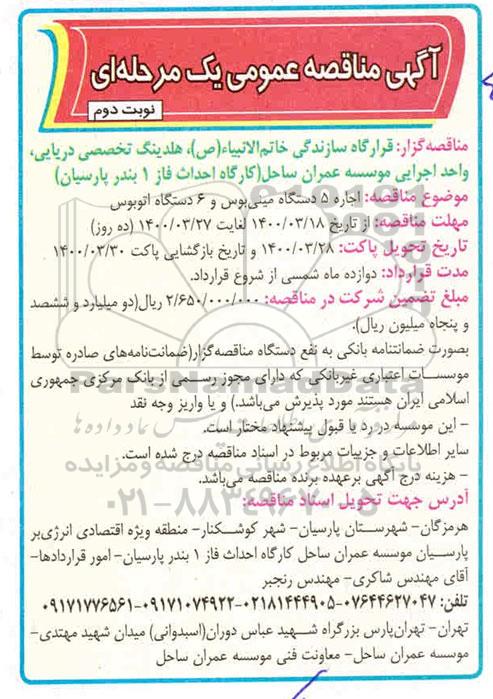 آگهی مناقصه عمومی یک مرحله‌ای
نوبت دوم
مناقصه‌گزار: قرارگاه سازندگی خاتم‌الانبیاء(ص)، هلدینگ تخصصی دریایی،
واحد اجرایی موسسه عمران ساحل(کارگاه احداث فاز ۱ بندر پارسیان)
موضوع مناقصه: اجاره ۵ دستگاه مینی‌بوس و ۶ دستگاه اتوبوس
مهلت مناقصه: از تاریخ ۱۴۰۰/۰۳/۱۸ لغایت ۱۴۰۰/۰۳/۲۷ (ده روز)
تاریخ تحویل پاکت: ۱۴۰۰/۰۳/۲۸ و تاریخ بازگشایی پاکت ۱۴۰۰/۰۳/۳۰
مدت قرارداد: دوازده ماه شمسی از شروع قرارداد.
مبلغ تضمین شرکت در مناقصه: ۲/۶۵۰/۰۰۰/۰۰۰ ریال(دو میلیارد و ششصد
و پنجاه میلیون ریال).
بصورت ضمانتنامه بانکی به نفع دستگاه مناقصه‌گزار(ضمانت‌نامه‌های صادره توسط
موسسات اعتباری غیربانکی که دارای مجوز رسمی از بانک مرکزی جمهوری
اسلامی ایران هستند مورد پذیرش می‌باشد.) و یا واریز وجه نقد
- این موسسه در رد یا قبول پیشنهاد مختار است.
سایر اطلاعات و جزییات مربوط در اسناد مناقصه درج شده است.
- هزینه درج آگهی برعهده برنده مناقصه می‌باشد.
آدرس جهت تحویل اسناد مناقصه:
هرمزگان- شهرستان پارسیان- شهر کوشکنار- منطقه ویژه اقتصادی انرژی‌بر
پارسیان موسسه عمران ساحل کارگاه احداث فاز ۱ بندر پارسیان- امور قراردادها-
آقای مهندس شاکری- مهندس رنجبر
تلفن: ۰۷۶۴۴۶۲۷۰۴۷-۰۲۱۸۱۴۴۴۹۰۵-۰۹۱۷۱۰۷۴۹۲۲-۰۹۱۷۱۷۷۶۵۶۱
تهران- تهران‌پارس بزرگراه شهید عباس دوران(اسبدوانی) میدان شهید مهتدی-
موسسه عمران ساحل- معاونت فنی موسسه عمران ساحل